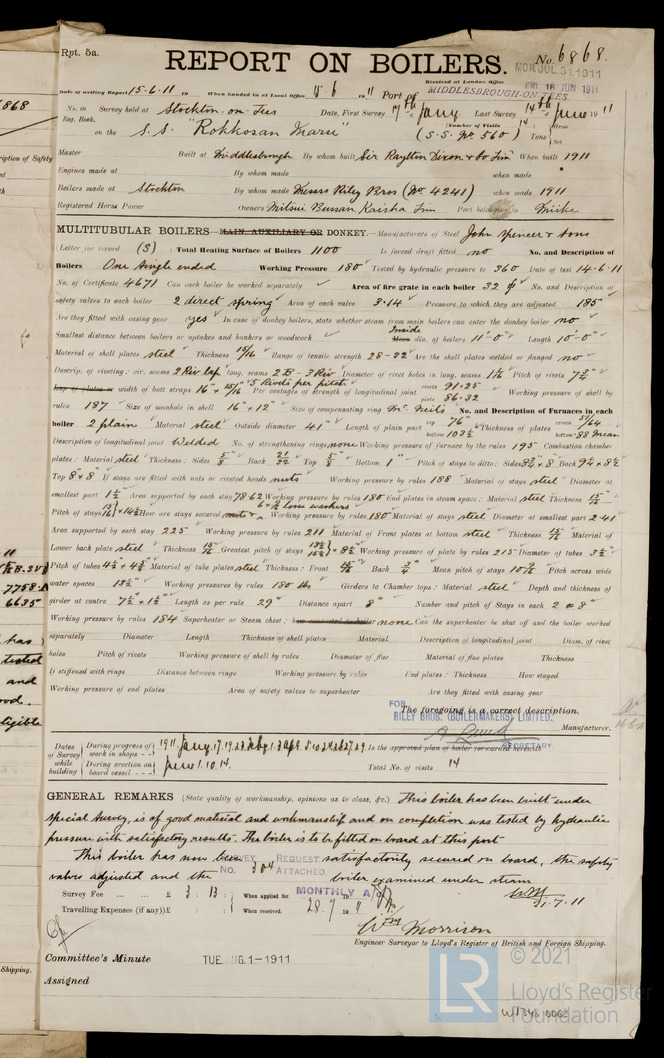 Rpt. 5a.
REPORT ON BOILERS.
No. 6868.
MON. JUL. 31. 1911
Received at London Office FRI. 16 JUN 1911
Date of writing Report 15-6-11 When handed in at Local Office 15-6 1911 Port of MIDDLESBROUGH-ON-TEES.
No. in Reg. Book. Survey held at Stockton-on-Tees Date, First Survey 17th Jany Last Survey 14th June 1911
(Number of Visits 14)
on the S.S. "Rokkosan Maru" (S.S. No 560) Tons { Gross Net
Master Built at Middlesbrough By whom built Sir Raylton Dixon & Co Lim When built 1911
Engines made at By whom made when made
Boilers made at Stockton By whom made Messrs Riley Bros (No 4241) when made 1911
Registered Horse Power Owners Mitsui Bussan Kaisha Lim Port belonging to Miike
MULTITUBULAR BOILERS MAIN, AUXILIARY OR DONKEY.—Manufacturers of Steel John Spencer & Sons
(Letter for record (S) ) Total Heating Surface of Boilers 1100 Is forced draft fitted no No. and Description of
Boilers One Single ended Working Pressure 180 Tested by hydraulic pressure to 360 Date of test 14-6-11
No. of Certificate 4671 Can each boiler be worked separately Area of fire grate in each boiler 32 No. and Description of
safety valves to each boiler 2 direct spring Area of each valve 3.14 Pressure to which they are adjusted 185
Are they fitted with easing gear yes In case of donkey boilers, state whether steam from main boilers can enter the donkey boiler no
Smallest distance between boilers or uptakes and bunkers or woodwork Inside dia. of boilers 11'-0" Length 10'-0"
Material of shell plates steel Thickness 15/16 Range of tensile strength 28-32 Are the shell plates welded or flanged no
Descrip. of riveting: cir. seams 2 Riv lap long. seams 2B-3Riv Diameter of rivet holes in long. seams 1 1/16 Pitch of rivets 7 3/4"
Lap of plates or width of butt straps 16" + 15/16 5 Rivets per pitch Per centages of strength of longitudinal joint rivets 91.25 plate 86.32 Working pressure of shell by
rules 187 Size of manhole in shell 16" + 12" Size of compensating ring Mc Neils No. and Description of Furnaces in each
boiler 2 plain Material steel Outside diameter 41" Length of plain part top 76" bottom 103 1/2 Thickness of plates crown 51/64 bottom
Description of longitudinal joint Welded No. of strengthening rings none Working pressure of furnace by the rules 195 Combustion chamber
plates: Material steel Thickness: Sides 5/8 Back 21/32 Top 5/8 Bottom 1" Pitch of stays to ditto: Sides 8 3/4 + 8" Back 9 1/4 + 8 1/2
Top 8 + 8" If stays are fitted with nuts or riveted heads nuts Working pressure by rules 188 Material of stays steel Diameter at
smallest part 1 1/2 Area supported by each stay 78.62 Working pressure by rules 180 End plates in steam space: Material steel Thickness 15/16
Pitch of stays How are stays secured loose washers Working pressure by rules 180 Material of stays steel Diameter at smallest part 2.41
Area supported by each stay 225 Working pressure by rules 211 Material of Front plates at bottom steel Thickness 15/16 Material of
Lower back plate steel Thickness 15/16 Greatest pitch of stays Working pressure of plate by rules 215 Diameter of tubes 3 1/4"
Pitch of tubes 4 1/2 + 4 3/4 Material of tube plates steel Thickness: Front Back 3/4" Mean pitch of stays Pitch across wide
water spaces 13 1/2" Working pressures by rules 180 lbs Girders to Chamber tops: Material steel Depth and thickness of
girder at centre 7 1/2 + 1 1/2" Length as per rule 29" Distance apart 8" Number and pitch of Stays in each 2 @ 8"
Working pressure by rules 184 Superheater or Steam chest; how connected to boiler none Can the superheater be shut off and the boiler worked
separately Diameter Length Thickness of shell plates Material Description of longitudinal joint Diam. of rivet
holes Pitch of rivets Working pressure of shell by rules Diameter of flue Material of flue plates Thickness
If stiffened with rings Distance between rings Working pressure by rules End plates: Thickness How stayed
Working pressure of end plates Area of safety valves to superheater Are they fitted with easing gear
The foregoing is a correct description,
FOR RILEY BROS. (BOILERMAKERS) LIMITED. Manufacturer.
SECRETARY
Dates of Survey while building
During progress of work in shops - - 1911. Jany. 17. 19. 23.
During erection on board vessel - - - June 1. 10. 14.
Is the approved plan of boiler forwarded herewith
Total No. of visits 14
GENERAL REMARKS (State quality of workmanship, opinions as to class, &c.) This boiler has been built under
special survey, is of good material and workmanship and on completion was tested by hydraulic
pressure with satisfactory results. The boiler is to be fitted on board at this port
This boiler has now been satisfactorily secured on board, the safety
valves adjusted and the boiler examined under steam
SURVEY REQUEST
No. 304 ATTACHED
WM
21.7.11
Survey Fee ... ... £ 3 : 13 : When applied for MONTHLY A/C
Travelling Expenses (if any) £ : : When received. 28.7 1911
Wm Morrison
Engineer Surveyor to Lloyd's Register of British and Foreign Shipping.
Committee's Minute TUE. AUG. 1-1911
Assigned
LR © 2021
Lloyd's Register
Foundation
W1348-0062
6868
ription of Safety
11
7758
6635
has
tested
and
od.
eligible
Shipping.